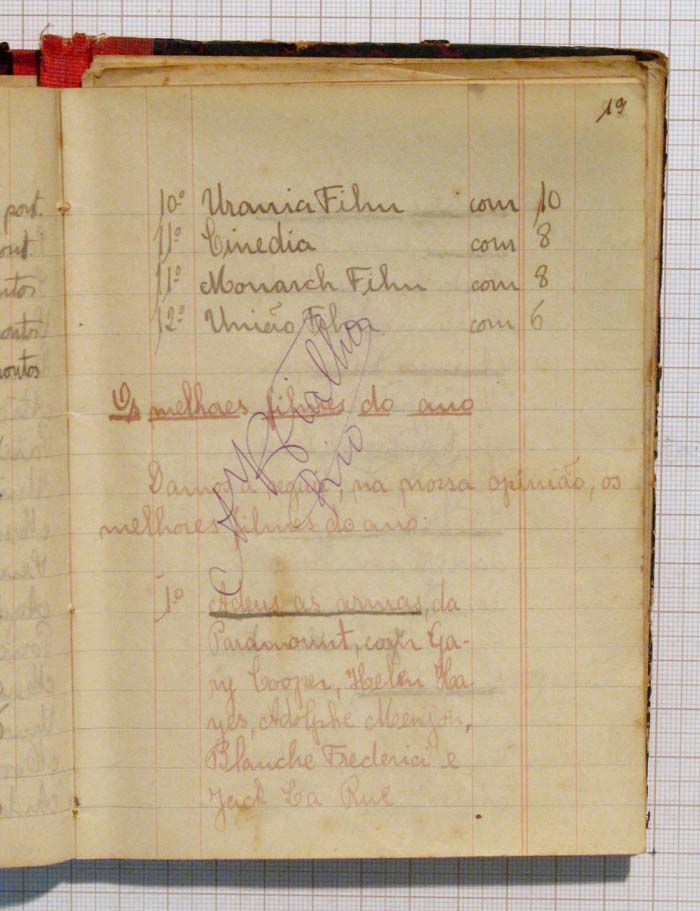 port.
ont.
ntos
ontos
nontos
19
10º Urania Film com 10
11º Cinedia com 8
11º Monarch Film com 8
12º União Film com 6
Os melhores filmes do ano
Damos a seguir, na nossa opinião, os
melhores filmes do ano:
1º Adeus às armas, da
Paramount, com Ga-
ry Cooper, Helen Ha-
yes, Adolphe Menjou,
Blanche Frederici e
Jack La Rue
Rio